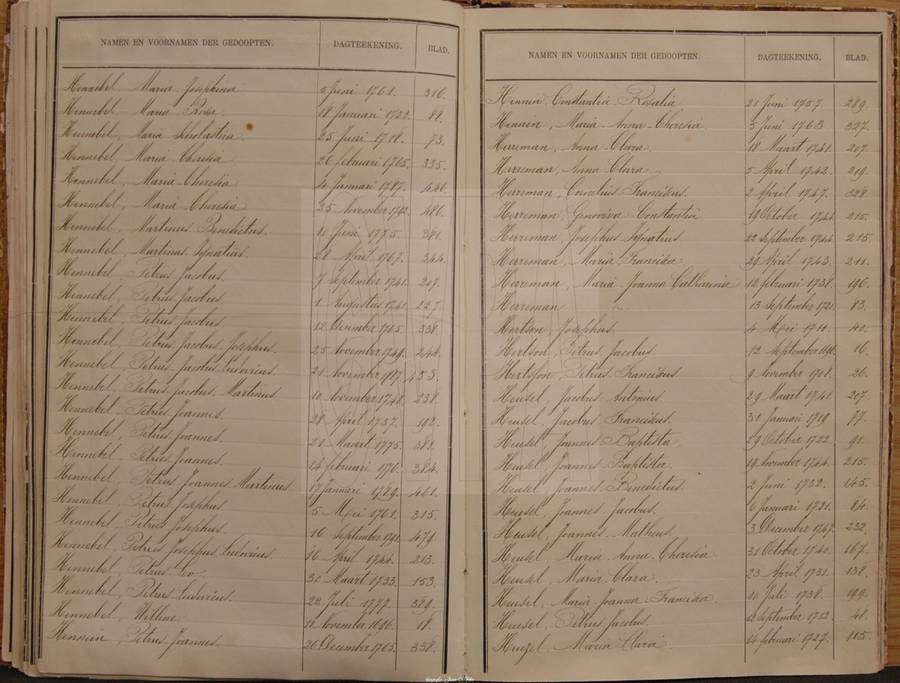 NAMEN EN VOORNAMEN DER GEDOOPTEN. DAGTEEKENING. BLAD.
Hennebel, Maria Josephina 5 Juni 1761. 316.
Hennebel, Maria Rosa 18 Januari 1722. 88.
Hennebel, Maria Scholastica 25 Juni 1718. 73.
Hennebel, Maria Theresia 26 februari 1765. 335.
Hennebel, Maria Theresia 4 Januari 1787. 446.
Hennebel, Maria Theresia 25 November 1792. 486.
Hennebel, Martinus Benedictus. 21 Juni 1775. 381.
Hennebel, Martinus Ignatius. 28 April 1767. 344.
Hennebel, Petrus Jacobus. 7 September 1741. 207.
Hennebel, Petrus Jacobus. 1 Augustus 1741. 227.
Hennebel, Petrus Jacobus. 12 December 1765. 338.
Hennebel, Petrus Jacobus Josephus. 25 November 1749. 244.
Hennebel, Petrus Jacobus Ludovicus. 21 November 1787. 453.
Hennebel, Petrus Jacobus Martinus 10 November 1748. 238.
Hennebel, Petrus Joannes. 28 April 1737. 192.
Hennebel, Petrus Joannes. 21 Maart 1775. 381.
Hennebel, Petrus Joannes. 14 februari 1776. 384.
Hennebel, Petrus Joannes Martinus 17 Januari 1789. 461.
Hennebel, Petrus Josephus 5 Mei 1761. 315.
Hennebel, Petrus Josephus. 16 September 1791. 474.
Hennebel, Petrus Josephus Ludovicus. 16 April 1744. 213.
Hennebel, Petrus Leo. 30 Maart 1733. 153
Hennebel, Petrus Ludovicus 22 Juli 1777. 389.
Hennebel, 11 November 1696. 18.
Hennin, Petrus Joannes. 26 December 1765. 338.
NAMEN EN VOORNAMEN DER GEDOOPTEN. DAGTEEKENING. BLAD.
Hennin, Constantia Rosalia 21 Juni 1757. 289.
Hennin, Maria Anna Theresia 3 Juni 1763. 327.
Herreman, Anna Clara 18 Maart 1741. 207.
Herreman, Anna Clara. 5 April 1742. 219.
Herreman, Cornelius Franciscus. 2 April 1747. 228.
Herreman, Genoviva Constantia 19 October 1744. 215.
Herreman, Josephus Ignatius. 22 September 1744. 215.
Herreman, Maria Francisca 24 April 1743. 211.
Herreman, Maria Joanna Catharina 12 februari 1738. 196.
Herreman 13 September 1721. 83.
Hertson, Josephus. 4 Mei 1711. 41.
Hertson, Petrus Jacobus. 12 September 1696. 16.
Hertsson, Petrus Franciscus 9 November 1701. 26.
Heusel, Jacobus Antonius 29 Maart 1741. 207.
Heusel, Jacobus Franciskus. 31 Januari 1719. 77.
Heusel, Joannes Baptista 29 October 1722. 91.
Heusel, Joannes Baptista 19 November 1744. 215.
Heusel, Joannes Benedictus 2 Juni 1732. 145.
Heusel, Joannes Jacobus. 6 Januari 1721. 84.
Heusel, Joannes Matheus. 3 December 1747. 232.
Heusel, Maria Anna Theresia 31 October 1740. 167.
Heusel, Maria Clara. 23 April 1731. 138.
Heusel, Maria Joanna Francisca 21 Juli 1738. 199.
Heusel, Petrus Jacobus. 2 September 1712 48.
Heuzel, Maria Clara 24 februari 1727. 115.